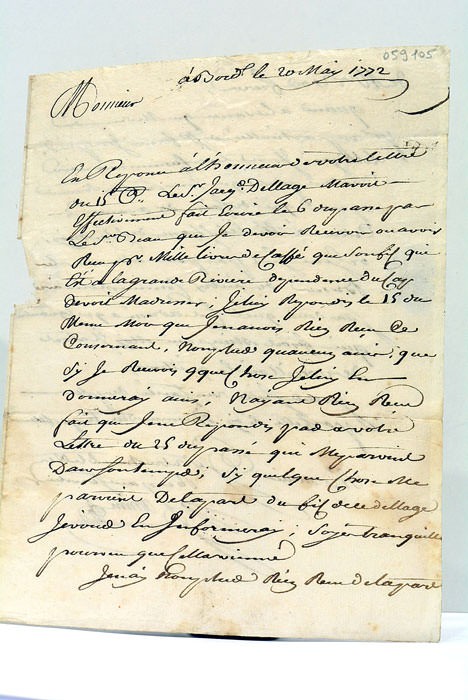 059105
à Bord. le 20 May 1772
Monsieur
En Reponce à l'honneur de votre lettre
du 15 Le Sr. Jacq. Dellage Mavoit
effectivement fait Ecrire le 6 du passe par
Le Sr. que Je devois Recevoir ou avois
Reçu pr. Mille livre de Caffé que Son fils qui
Est a la grande Riviere dependence du Cap
devoit Madresser, Je luy Repondis le 15 du
Meme Mois que Jenavois Rien Reçu Ce
Concernant, Nonplus quaucun avis, que
Sy Je Recevois quelque Chose Je luy En
donneray avis, Nayant Rien Reçu
fait que Jene Repondis pas a votre
Lettre du 25 du passé qui Me parvint
Dans Son temps, Sy quelque Chose Me
parvient De la part du fils de de dellage
Je vous En Informeray, Soyés tranquille
pourveu que Cella vienne
Jenay Nonplus Rien Reçu de la part